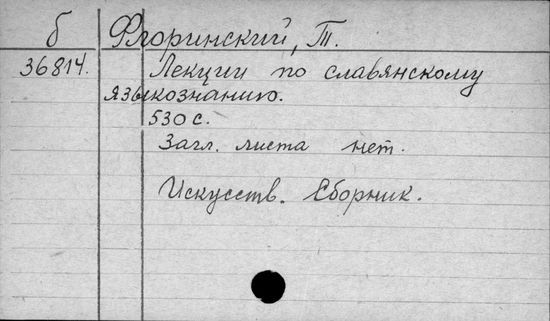 б Флоринский, Т.
36814. Лекции по славянскому
языкознанию.
530 с.
Загл. листа нет.
Искусств. Сборник.